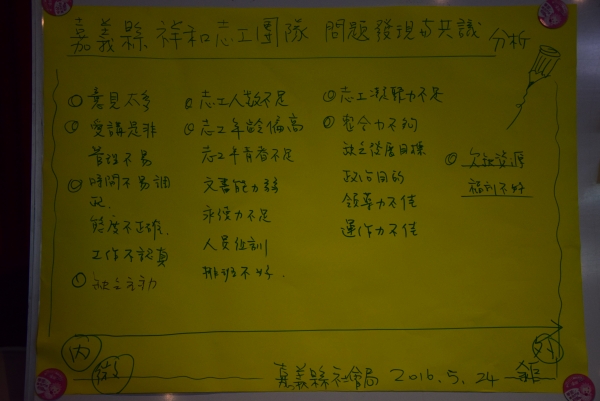 嘉義縣祥和志工團隊 問題發現與共識分析
○意見太多
○愛講是非
管理不易
○時間不易調
配.
態度不正確.
工作不認真
○缺乏主動
○志工人數不足
○志工年齡偏高
志工年青者不足
文書能力弱
永續力不足
人員組訓
排班不好.
○志工凝聚力不足
○整合力不夠
缺乏發展目標
政治目的
領導力不佳
運作力不佳
○欠缺資源
福利不好
內
外
嘉義縣社會局 2016.5.24